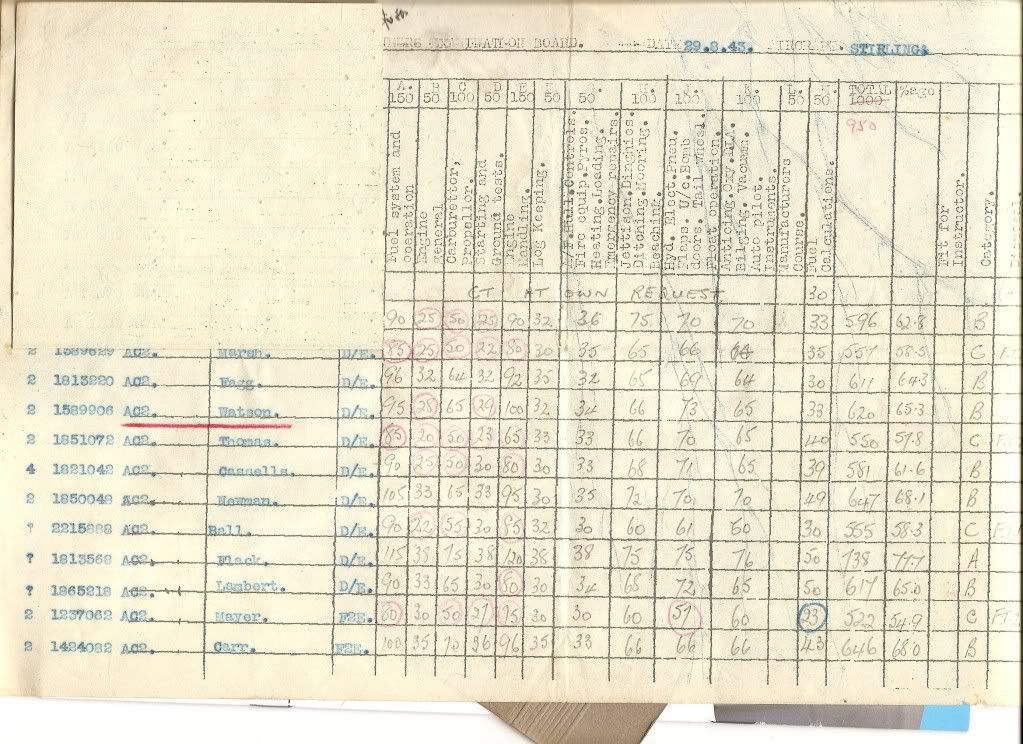 EXAMINATION BOARD. DATE 29.8.43. AIRCRAFT. STIRLING.
A. B C D E F G. H. J. K. L. M. TOTAL %age
150 50 100 50 150 50 50 100 100 100 50 50 1000
950
Fuel system and operation
Engine general
Carburettor, Propellor.
Starting and Ground tests.
Engine Handling.
Log Keeping.
Hull.Controls. Fire equip.Pyros. Heating.Loading. Emergency repairs.
Jettison.Dinghies. Ditching.Mooring. Beaching.
Hyd. Elect.Pneu. Flaps. U/c.Bomb doors. Tail Wheel. Float operation.
Anticing.Oxy. Bilging. Vacuum. Auto pilot. Instruments.
Manufacturors Course.
Fuel Calculations.
Fit for Instructor.
Category.
CT AT OWN REQUEST 30
90 25 50 25 90 32 36 75 70 70 33 596 62.8 B
2 1589829 AC2. Marsh. D/E. 85 25 50 22 80 30 35 65 66 35 557 58.5 C
2 1813220 AC2. Fagg. D/E. 96 32 64 32 92 35 32 65 69 64 30 611 64.3 B
2 1589906 AC2. Watson. D/E. 95 28 65 29 100 32 34 66 73 65 33 620 65.3 B
2 1851072 AC2. Thomas. D/E. 85 20 50 23 65 33 33 66 70 65 40 550 57.8 C
4 1821042 AC2. Cassells. D/E. 90 25 50 30 80 30 33 68 71 65 39 581 61.6 B
2 1850048 AC2. Newman. D/E. 105 33 65 33 95 30 35 72 70 70 49 647 68.1 B
? 2215888 AC2. Ball. D/E. 90 22 55 30 85 32 30 60 61 60 30 555 58.3 C
? 1813568 AC2. Flack. D/E. 115 38 75 38 120 38 38 75 75 76 50 738 77.7 A
? 1865218 AC2. Lambert. D/E. 90 33 65 30 80 30 34 68 72 65 50 617 65.0 B
2 1237062 AC2. Mayer. F2E. 80 30 50 27 75 30 30 60 57 60 23 522 54.9 C
2 1424082 AC2. Carr. F2E. 100 35 70 36 96 35 33 66 66 66 43 646 68.0 B